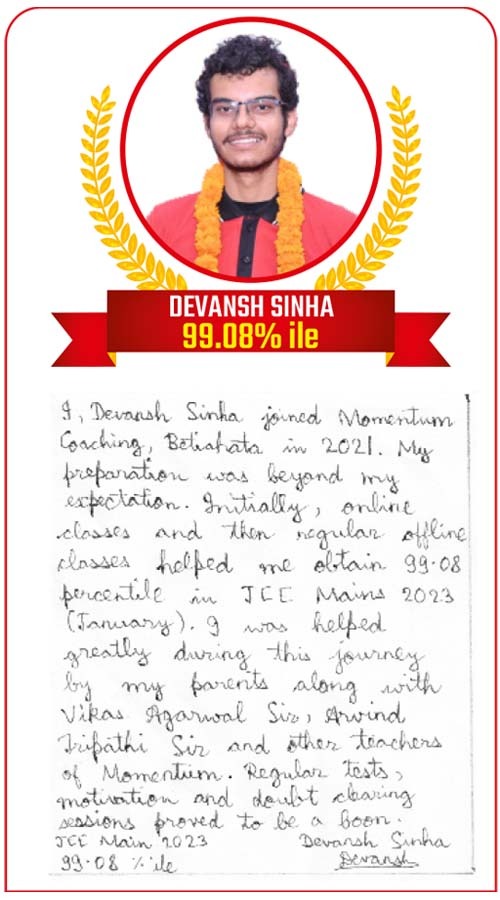 DEVANSH SINHA
99.08% ile
I, Devansh Sinha joined Momentum
Coaching, Betiahata in 2021. My
preparation was beyond my
expectation. Initially, online
classes and then regular offline
classes helped me obtain 99.08
percentile in JEE Mains 2023
(January). I was helped
greatly during this journey
by my parents along with
Vikas Agarwal Sir, Arvind
Tripathi Sir and other teachers
of Momentum. Regular tests,
motivation and doubt clearing
sessions proved to be a boon.
JEE Main 2023 Devansh Sinha
99.08 %ile Devansh